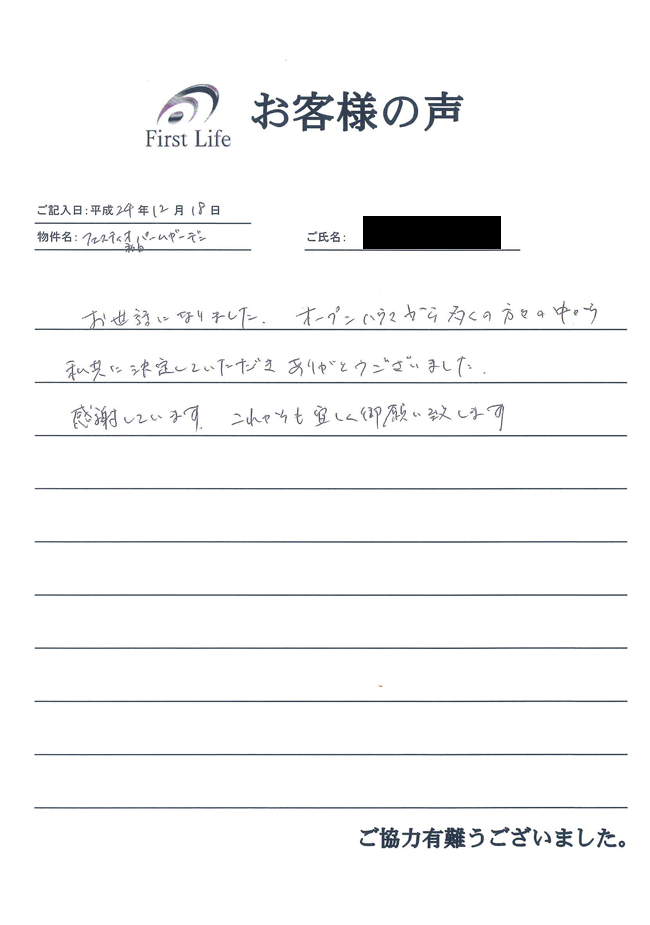 First Life
お客様の声
ご記入日:平成24年12月18日
物件名:フェスティオパームガーデン
ご氏名:
お世話になりました. オープンハウスから多くの方々の中から
私共に決定していただきありがとうございました.
感謝しています. これからも宜しく御願い致します
ご協力有難うございました。